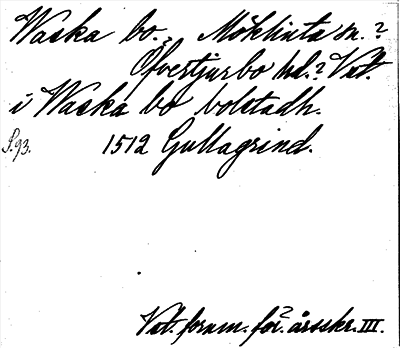 Waska bo., Möklinta sn.?
Öfvertjurbo hd.? Vstl.
i Waska bo bolstadh.
S. 93. 1512 Gullagrind.
Vstl. fornm. för? årsskr. III.